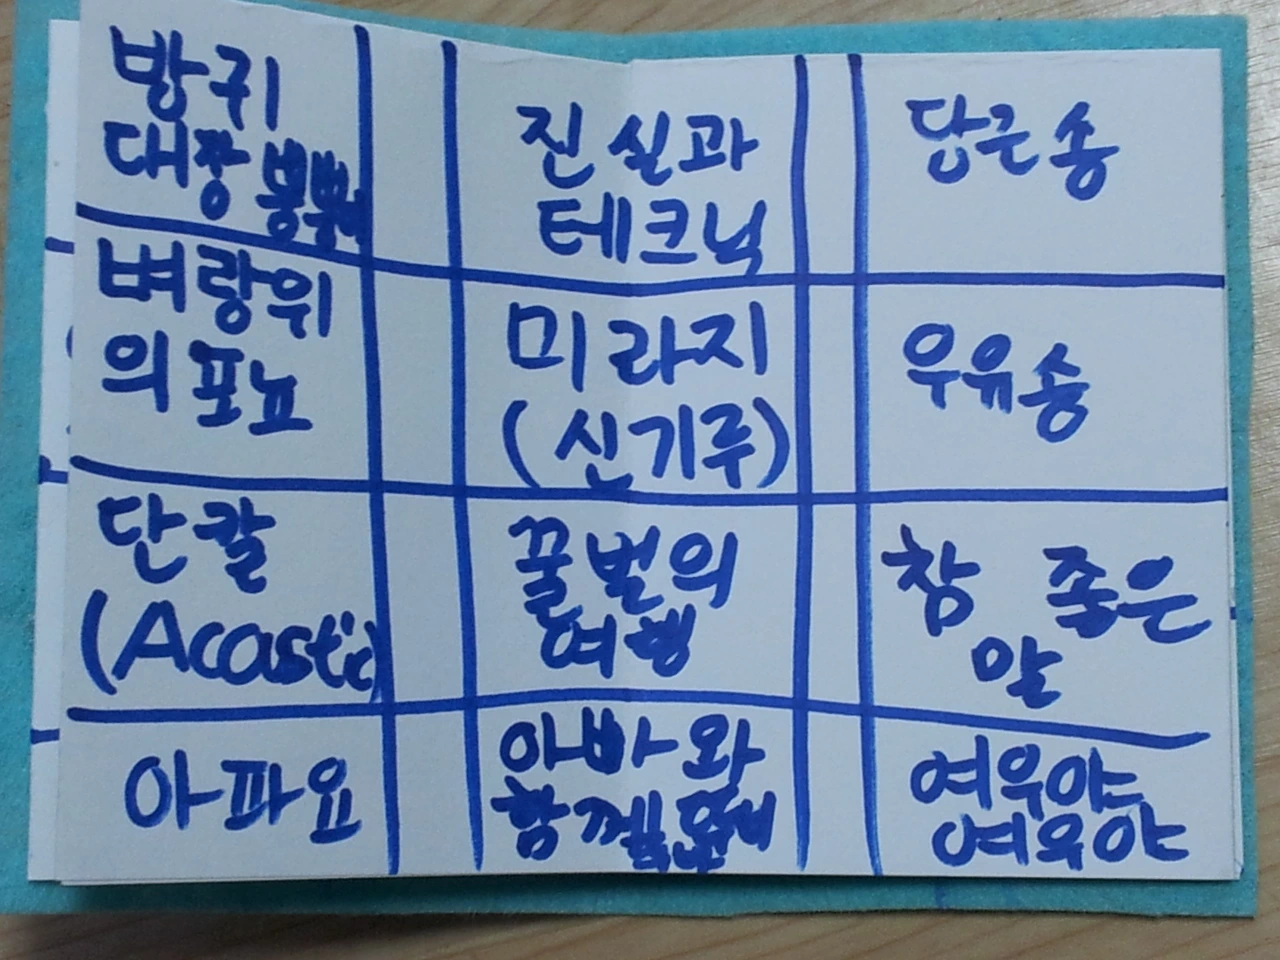 방귀
대장 뿡뿡이
벼랑위
의 포뇨
단칼
(Acastic)
아파요
진실과
테크닉
미라지
(신기루)
꿀벌의
여행
아빠와
함께
당근송
우유송
참 좋은
말
여우야
여우야